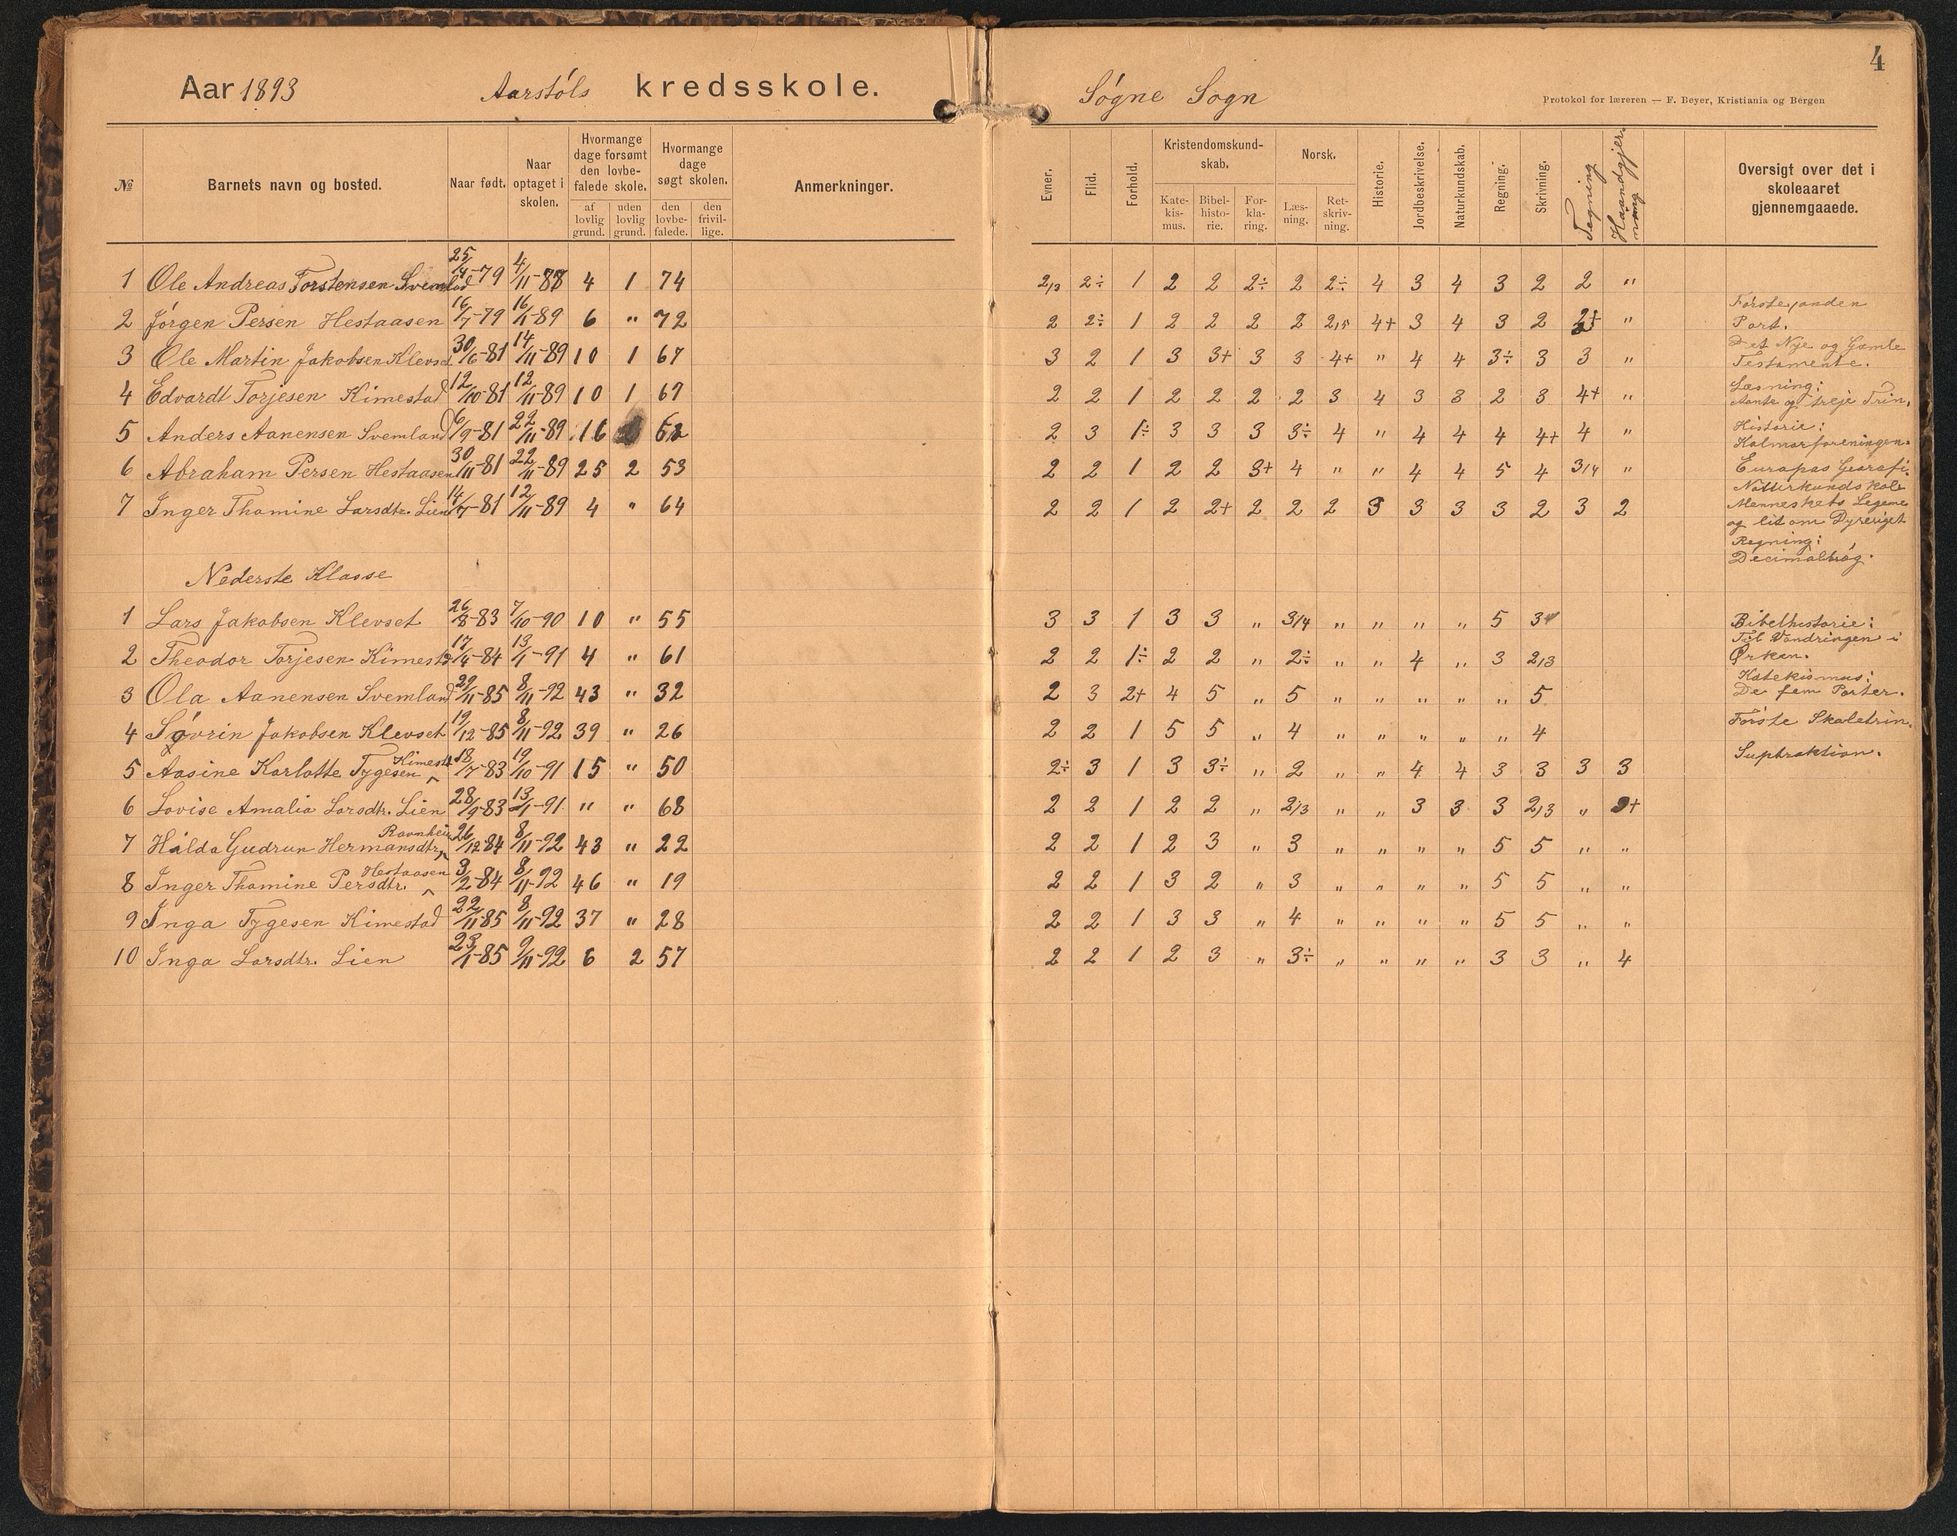 4
Aar 1893 Aarstóls kredsskole. Søgne Sogn
Protokol for læreren — F. Beyer, Kristiania og Bergen
№ Barnets navn og bosted. Naar født. Naar optaget i skolen. Hvormange dage forsømt den lovbefalede skole. af lovlig grund. uden lovlig grund. Hvormange dage søgt skolen. den lovbefalede. den frivillige. Anmerkninger. Evner. Flid. Forhold. Kristendomskundskab. Katekismus. Bibelhistorie. Forklaring. Norsk. Læsning. Retskrivning. Historie. Jordbeskrivelse. Naturkundskab. Regning. Skrivning. Tegning Haandgjerning Oversigt over det i skoleaaret gjennemgaaede.
1 Ole Andreas Torstensen Svemlad 25/4-79 4/11-87 4 1 74 2/3 2÷ 1 2 2 2÷ 2 2÷ 4 3 4 3 2 2 "
2 Jørgen Persen Hestaasen 16/7-79 16/11-89 6 " 72 2 2÷ 1 2 2 2 2 2,5 4+ 3 4 3 2 2÷ "
3 Ole Martin Jakobsen Klevset 30/6-81 14/11-89 10 1 67 3 2 1 3 3+ 3 3 4+ " 4 4 3÷ 3 3 "
4 Edvardt Torjesen Kimestad 12/10-81 12/11-89 10 1 67 2 2 1 2 2 2 2 3 4 3 3 2 3 4+ "
5 Anders Aanensen Svemland 6/9-81 22/11-89 16 62 2 3 1÷ 3 3 3 3÷ 4 " 4 4 4 4+ 4 "
6 Abraham Persen Hestaasen 30/11-81 22/11-89 25 2 53 2 2 1 2 2 3+ 4 " " 4 4 5 4 3/4 "
7 Inger Thomine Larsdtr. Lien 14/7-81 12/11-89 4 " 64 2 2 1 2 2+ 2 2 2 3 3 3 3 2 3 2
Første, anden
Part.
Det Nye og Gamle
Testamente.
Læsning:
Aante og treje Trin.
Historie:
Kalmarforeningen.
Europas Gearafi.
Natturkundskab
Menneskets Legeme
og lit om Dyreriget
Regning:
Decimalbrøg.
Nederste Klasse
1 Lars Jakobsen Klevset 26/8-83 7/10-90 10 " 55 3 3 1 3 3 " 3/4 " " " " 5 3
2 Theodor Torjesen Kimestad 17/4-84 13/1-91 4 " 61 2 2 1÷ 2 2 " 2÷ " " 4 " 3 2/3
3 Ola Aanensen Svemland 29/11-85 8/11-92 43 " 32 2 3 2+ 4 5 " 5 " " " " " 5
4 Søvrin Jakobsen Klevset 19/12-85 8/11-92 39 " 26 2 2 1 5 5 " 4 " " " " " 4
5 Aasine Karlotte Tygesen Kimest. 18/7-83 19/10-91 15 " 50 2÷ 3 1 3 3÷ " 2 " " 4 4 3 3 3 3
6 Lovise Amalia Larsdtr. Lien 28/9-83 13/1-91 " " 68 2 2 1 2 2 " 2/3 " " 3 3 3 2/3 " 2+
7 Hilda Gudrun Hermansdtr. Ravnheia 26/12-84 8/11-92 43 " 22 2 2 1 2 3 " 3 " " " " 5 5 " "
8 Inger Thomine Persdtr. Hestaasen 3/2-84 8/11-92 46 " 19 2 2 1 3 2 " 3 " " " " 5 5 " "
9 Inga Tygesen Kimestad 22/11-85 8/11-92 37 " 28 2 2 1 3 3 " 4 " " " " 5 5 " "
10 Inga Larsdtr. Lien 23/1-85 9/11-92 6 2 57 2 2 1 2 3 " 3÷ " " " " 3 3 " 4
Bibelhistorie:
Til Vandringen i
Ørken.
Katekismus:
De fem Parter.
Første Skoletrin.
Suptraktion.